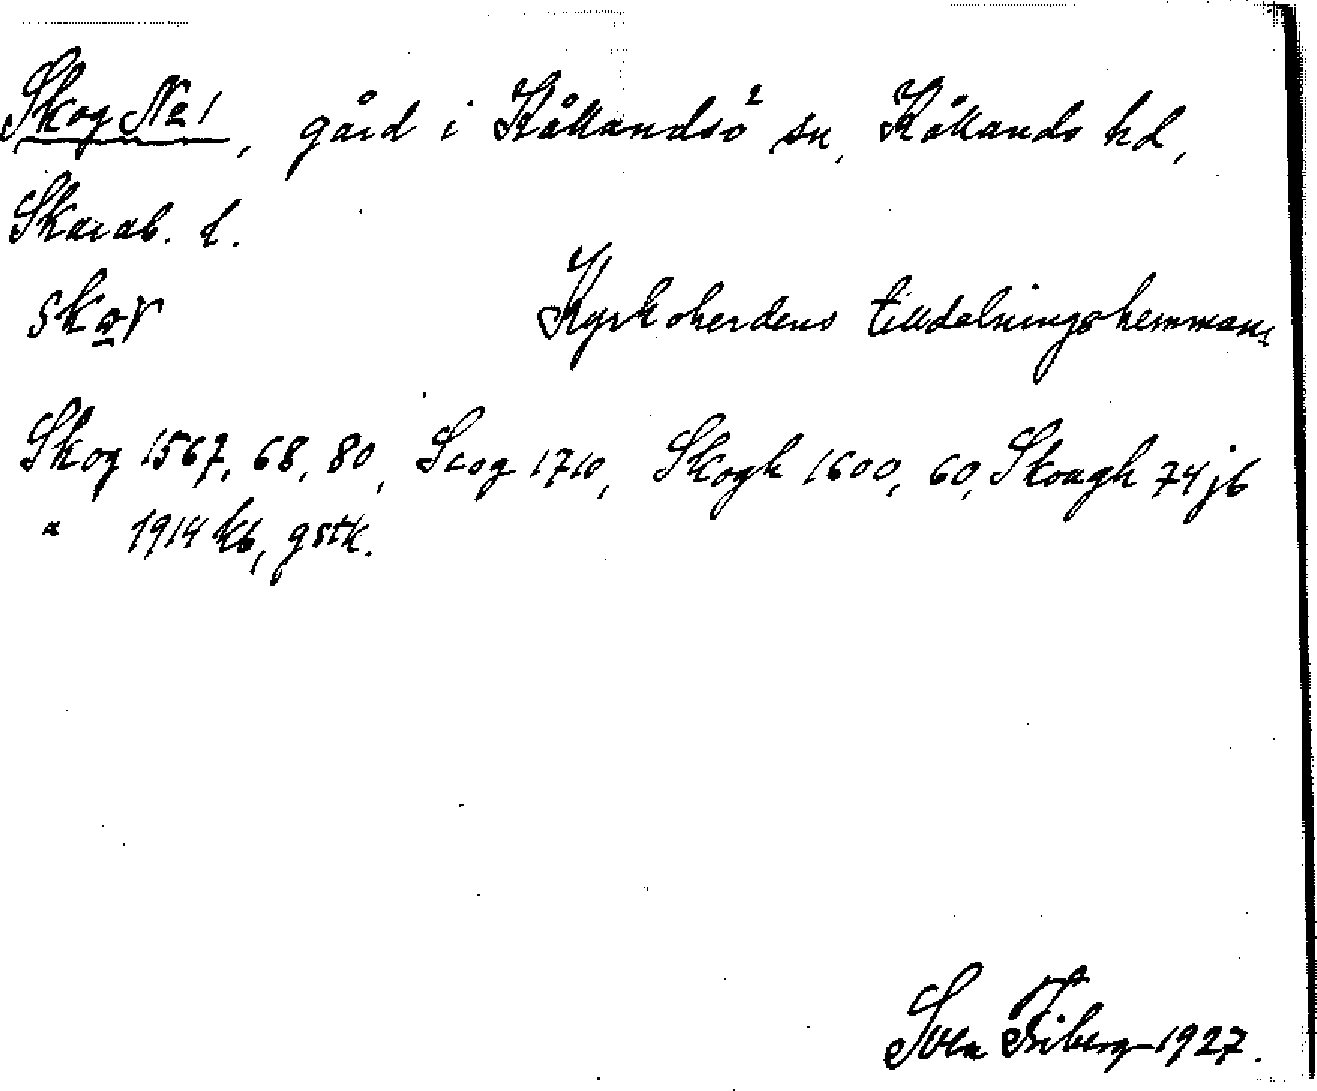 Skog No 1, gård i Kållandsö sn, Kållands hd,
Skarab. l.
skoγ Kyrkoherdens tilldelningshemman
Skog 1567, 68, 80, Scog 1710, Skogh 1600, 60, Skoagh 74 jb
" 1914 kb, gstk.
Sven Friberg 1927.